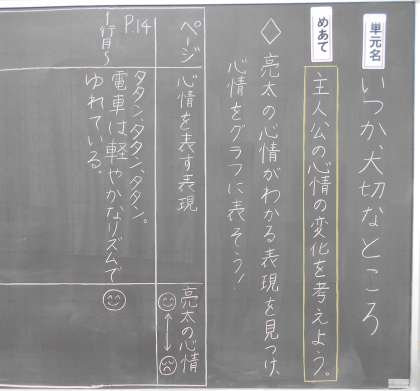 単元名
いつか、大切なところ
めあて
主人公の心情の変化を考えよう。
◇亮太の心情がわかる表現を見つけ、
心情をグラフに表そう！
ページ
心情を表す表現
亮太の心情
P.14
1行目〜
タタン、タタン、タタン。
電車は、軽やかなリズムで
ゆれている。